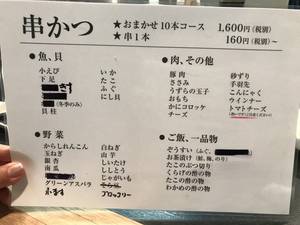 串かつ
★おまかせ10本コース 1,600円(税別)
★串1本 160円〜(税別)
●魚、貝
小えび いか
下足 たこ
ふぐ
にし貝
(冬季のみ)
貝柱
●肉、その他
豚肉 砂ずり
ささみ 手羽先
うずらの玉子 こんにゃく
おもち ウインナー
かにコロッケ トマトチーズ
チーズ
●野菜
からしれんこん 白ねぎ
玉ねぎ 山芋
銀杏 しいたけ
南瓜 ししとう
じゃがいも
グリーンアスパラ そら豆
ブロッコリー
●ご飯、一品物
ぞうすい(ふぐ、
お茶漬け(鮭、梅、のり)
たこのぶつ切り
くらげの酢の物
たこの酢の物
わかめの酢の物